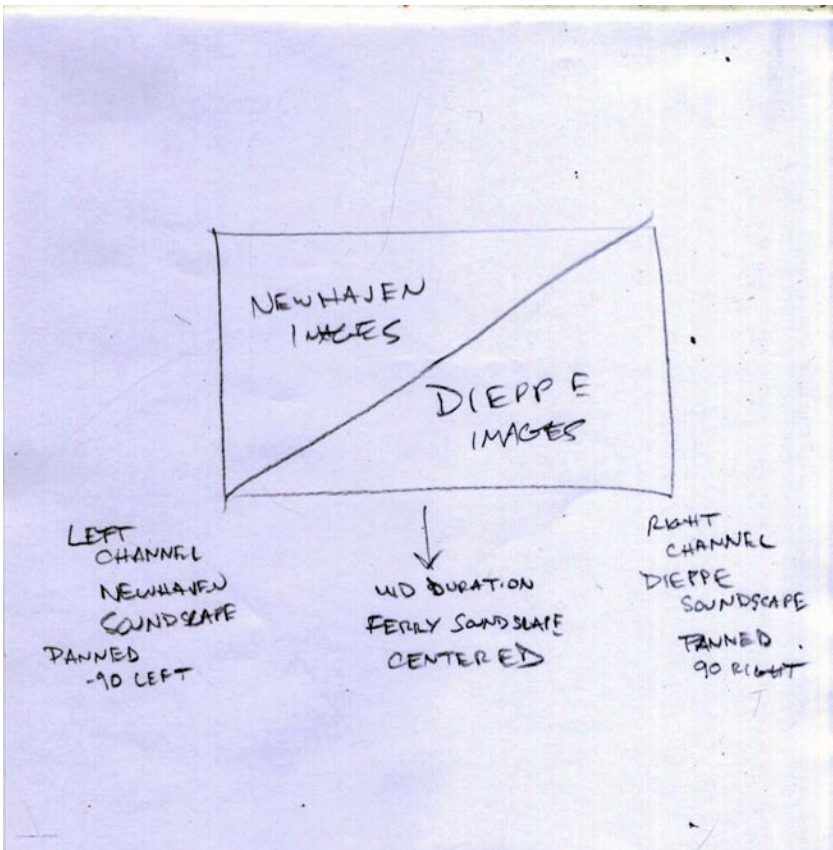 NEWHAVEN
IMAGES
DIEPPE
IMAGES
LEFT
CHANNEL
NEWHAVEN
SOUNDSCAPE
PANNED
-90 LEFT
DURATION
FERRY SOUNDSCAPE
CENTERED
RIGHT
CHANNEL
DIEPPE
SOUNDSCAPE
PANNED
90 RIGHT